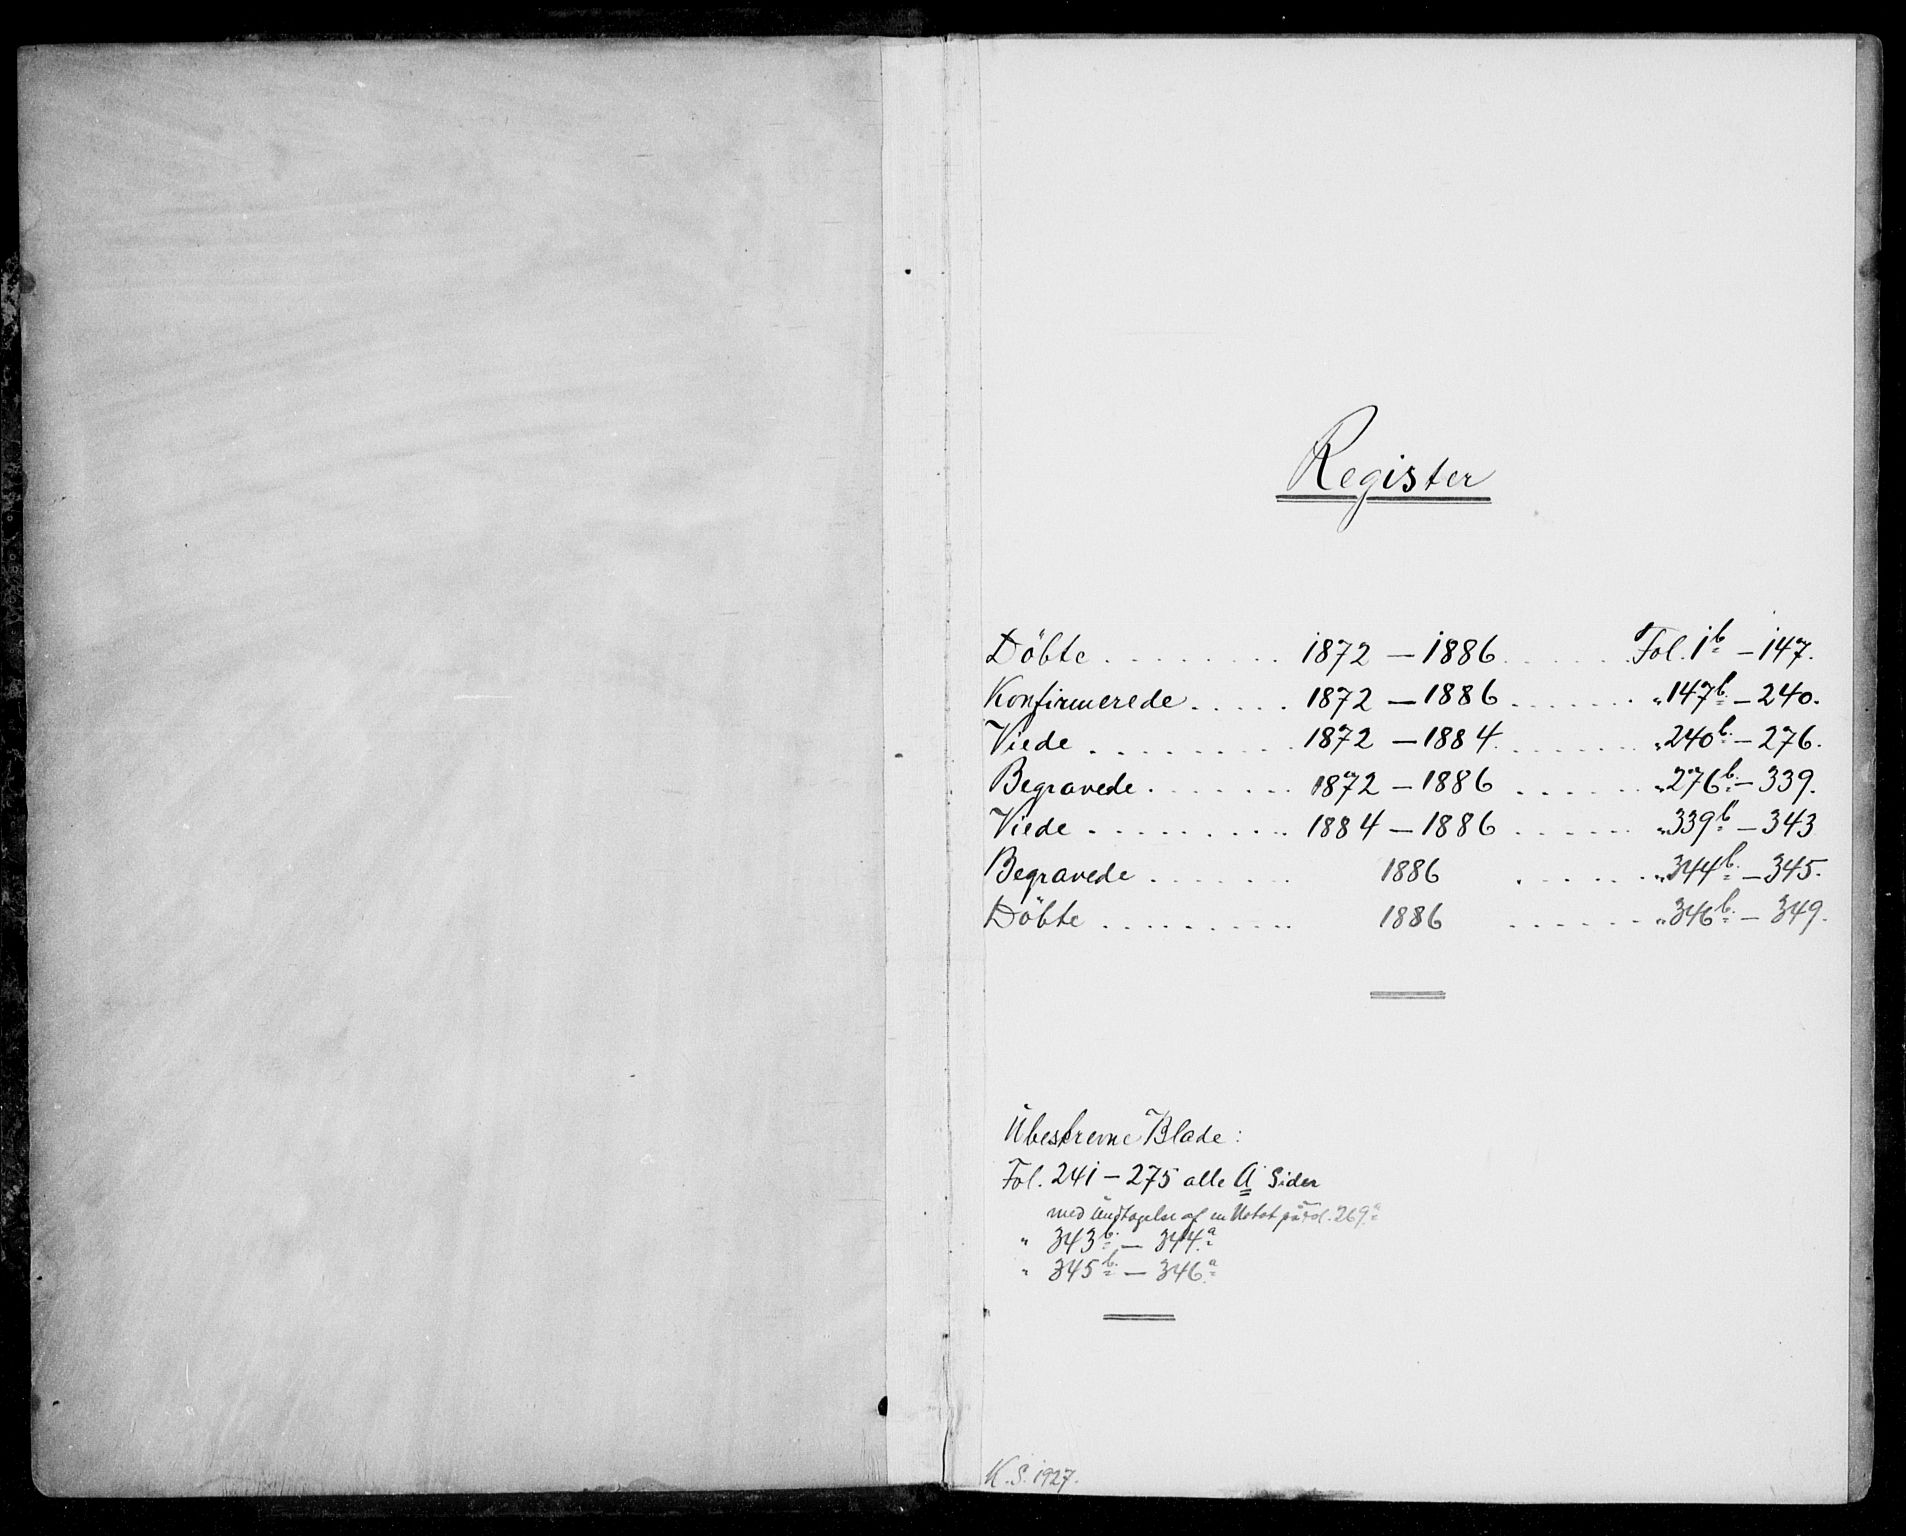 Register
Döbte . . . . . . . . . 1872 — 1886 . . . . . . Fol. 1b — 147.
Konfirmerede . . . . . 1872 — 1886 . . . . . . . „ 147b — 240.
Viede . . . . . . . . . . 1872 — 1884 . . . . . . . „ 240b — 276.
Begravede . . . . . . . 1872 — 1886 . . . . . . „ 276b — 339.
Viede . . . . . . . . . . 1884 — 1886 . . . . . . „ 339b — 343
Begravede . . . . . . . 1886 . . . . . . „ 344b — 345.
Döbte . . . . . . . . . . 1886 . . . . . . . „ 346b — 349.
Ubeskrevne Blade :
Fol. 241 — 275 alle A Sider
med Undtagelse af en Notat på Fol. 269a
„ 343b — 344a
„ 345b — 346a
K. S. 1927.